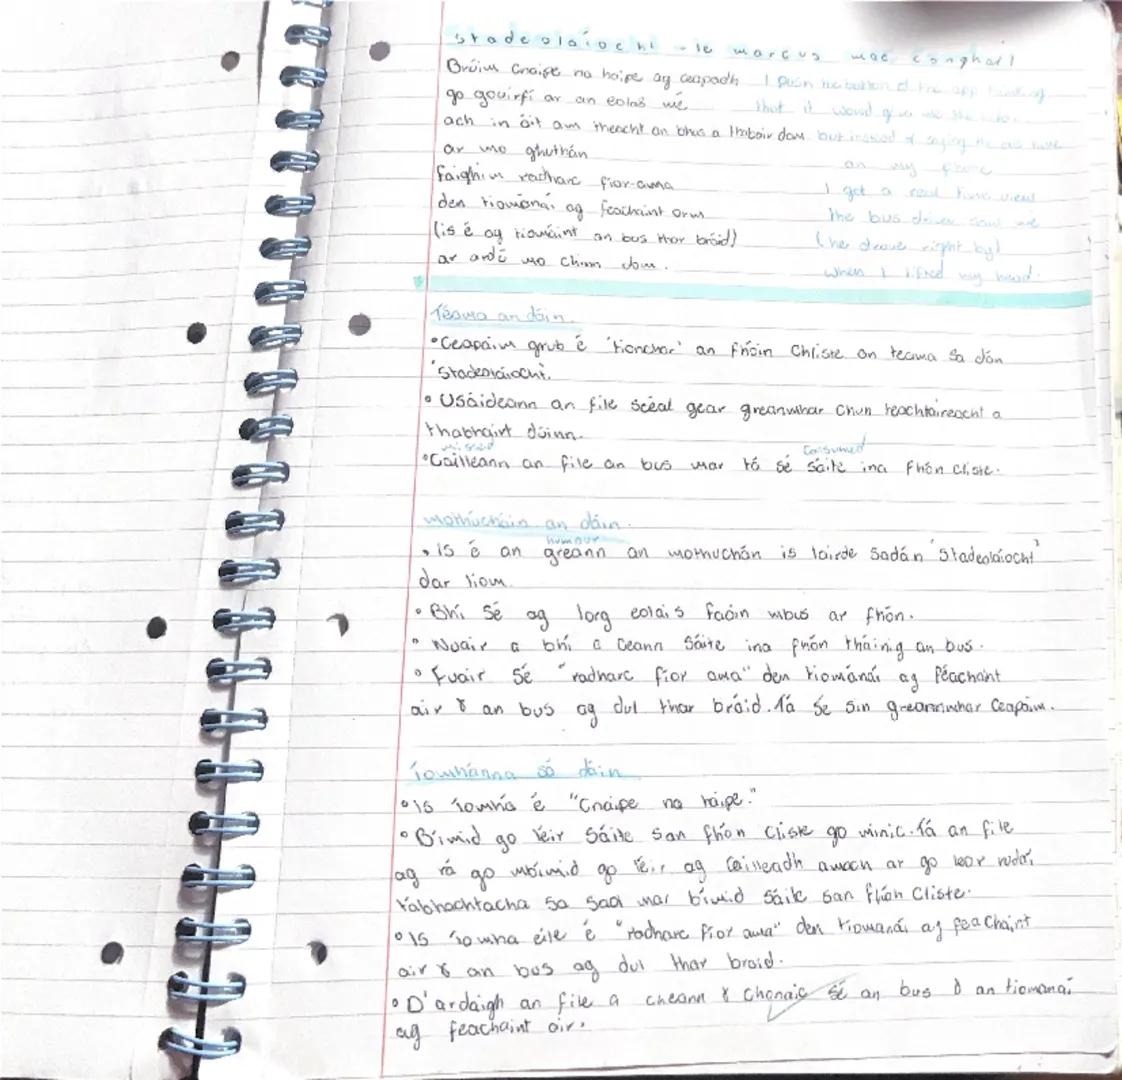 Stadeolaíocht - le marcus mac conghail
Brúim Cnaipe na haipe ag ceapadh I push the button of the app thinking
go gcuirfí ar an eolas mé that it would give me the info.
ach in áit am theacht an bhus a thabair dom but instead of saying the bus time
ar mo ghuthán on my phone
faighim radharc fíor-ama I get a real time view
den tiománaí ag feachaint orm the bus driver saw me
(is é ag tiomáint an bus thar bráid) (he drove right by)
ar ardú mo chinn dom. when I lifted my head.
Téama an dáin.
•Ceapaim grub é 'tionchar' an fhóin Chliste an teama sa dán
'Stadeolaíocht.
• Úsáideann an file scéal gear greannmhar chun teachtaireacht a
thabhairt dúinn.
missed consumed
•Cailleann an file an bus mar tá sé sáite ina fhón cliste.
mothúcháin an dáin.
humour
• is é an greann an mothuchán is láirde sa dán 'Stadeolaíocht'
dar liom.
• Bhí sé ag lorg eolais faoin mbus ar fhón.
• Nuair a bhí a ceann sáite ina fhón tháinig an bus.
• Fuair sé "radharc fíor ama" den tiománaí ag féachaint
air & an bus ag dul thar bráid. Tá sé sin greannmhar ceapaim.
Íomhánna sa dáin
• is íomhá é "Cnaipe na haipe."
• Bímid go léir sáite san fhón cliste go minic. tá an file
ag rá go mbímid go léir ag cailleadh amach ar go leor rudaí
tábhachtacha sa saol mar bímid sáite san fhón cliste.
• is íomha eile é "radharc fíor ama" den tiomanaí ag feachaint
air & an bus ag dul thar braid.
• D'ardaigh an file a cheann & chonaic sé an bus & an tiomanaí
ag feachaint air.